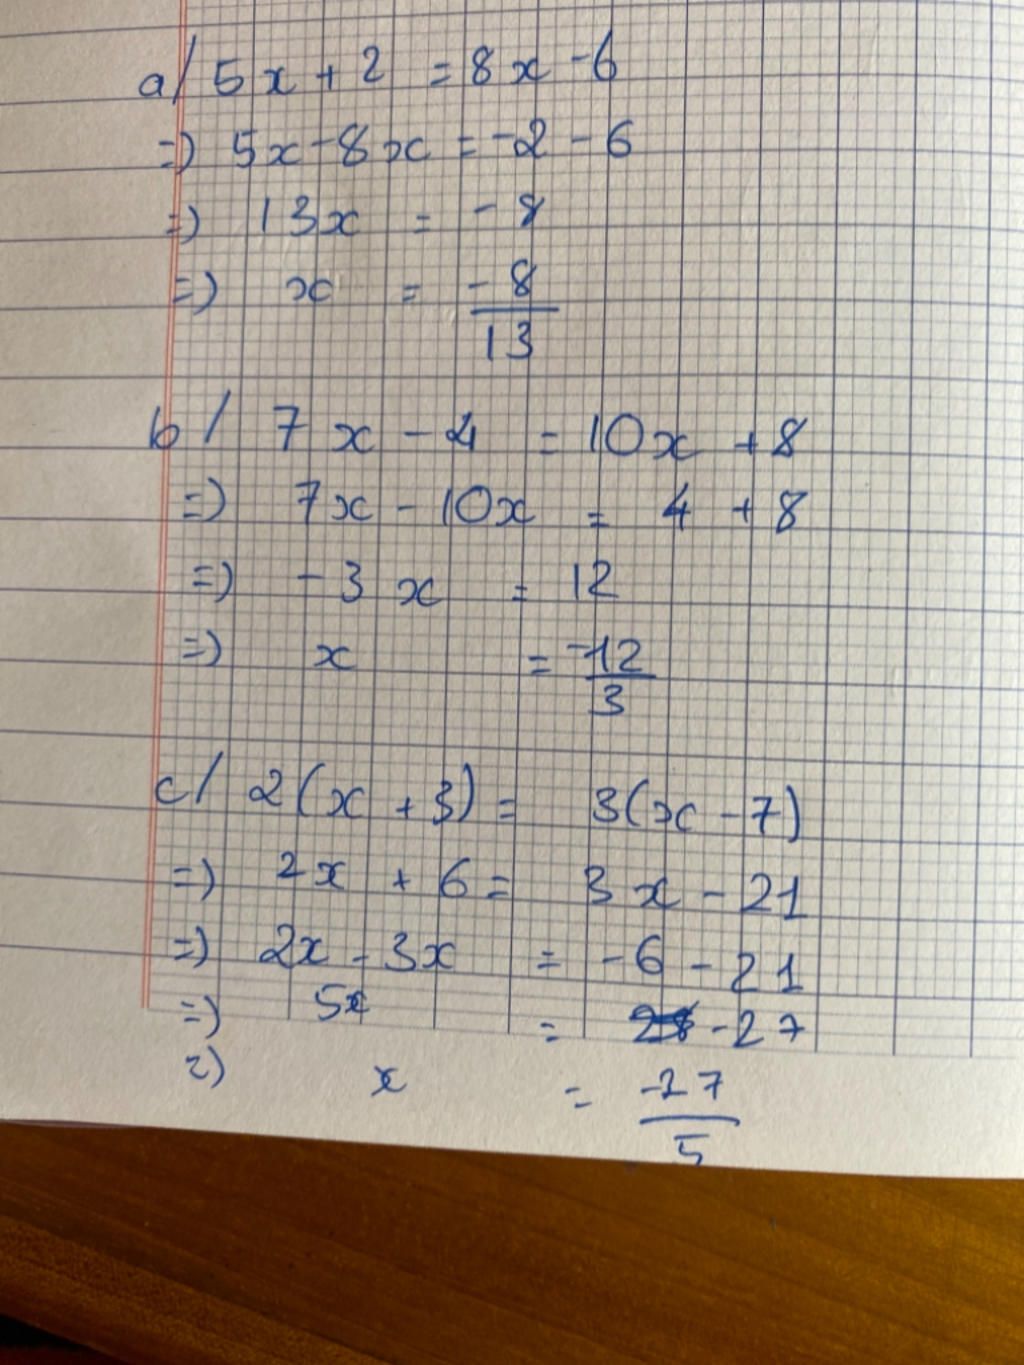 a/ 5x + 2 = 8x - 6
=) 5x - 8x = -2 - 6
=) 13x = - 8
=) x = -8/13
b/ 7x - 4 = 10x + 8
=) 7x - 10x = 4 + 8
=) - 3x = 12
=) x = -12/3
c/ 2(x + 3) = 3(x - 7)
=) 2x + 6 = 3x - 21
=) 2x - 3x = - 6 - 21
=) 5x = -27
=) x = -27/5